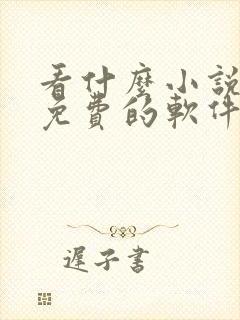 看什麼小說
免費的軟件
遲子書